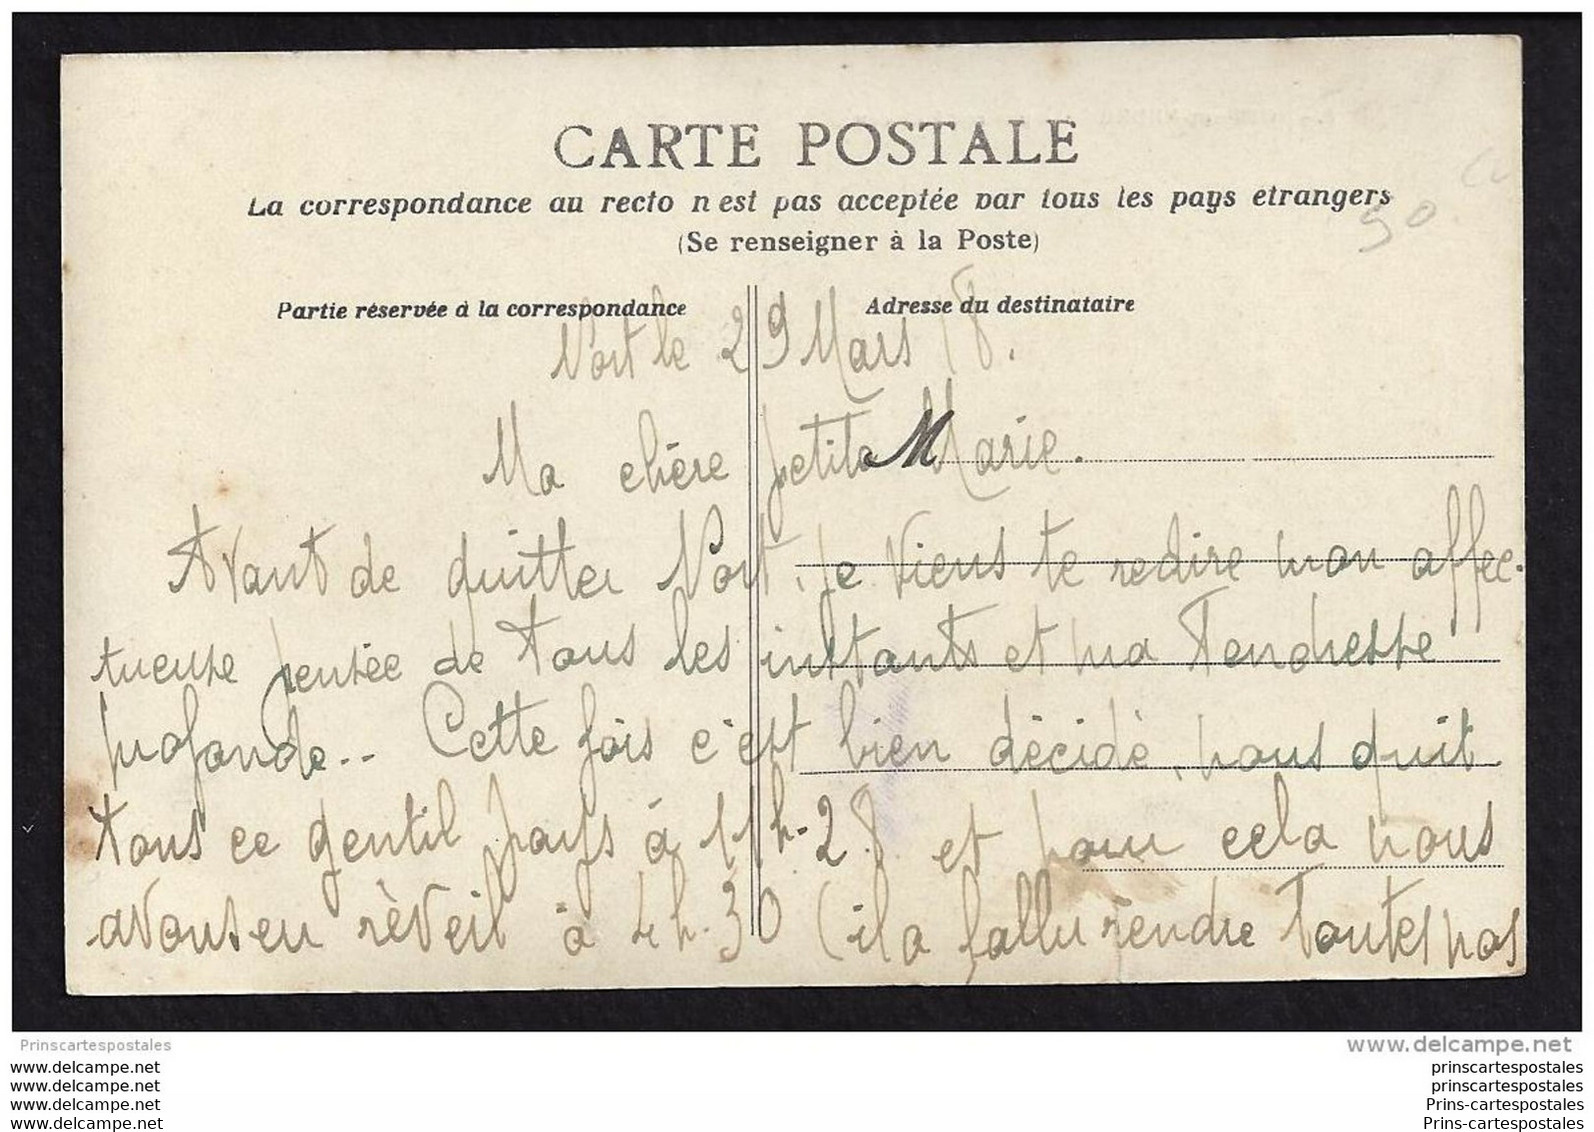 CARTE POSTALE
La correspondance au recto n'est pas acceptée par tous les pays étrangers
(Se renseigner à la Poste)
90
Partie réservée à la correspondance
Adresse du destinataire
Nort le 29 Mars 18.
Ma chère petite Marie.
Avant de quitter Nort, je viens te redire mon affec-
tueuse pensée de tous les instants et ma tendresse
profonde.. Cette fois c'est bien décidé, nous quit
tons ce gentil pays à 11h-28 et pour cela nous
avons eu réveil à 4h-30 (il a fallu rendre toutes nos
Prinscartespostales
www.delcampe.net
www.delcampe.net
www.delcampe.net
www.delcampe.net
www.delcampe.net
prinscartespostales
prinscartespostales
Prins-cartespostales
Prins-cartespostales